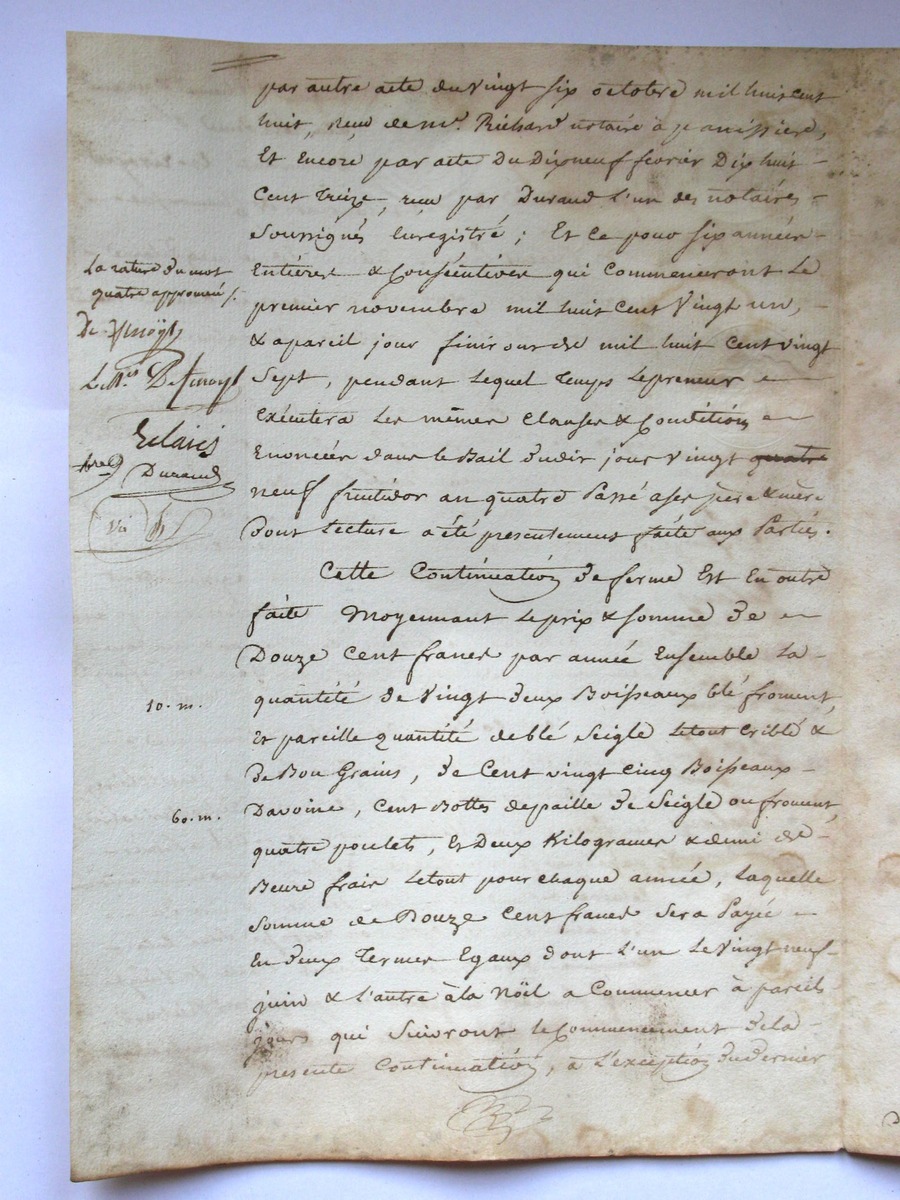 par autre acte du vingt six octobre mil huit cent
huit, reçu de Mr. Richard notaire à panissiere,
Et Encore par acte Du Dixneuf fevrier Dix huit
Cent Treize, reçu par Durand L'un des notaires
Soussignés Enregistré ; Et ce pour six années
Entieres & Consécutives qui Commenceront Le
premier novembre mil huit Cent Vingt un,
& apareil jour finiront de mil huit cent vingt
Sept, pendant lequel Temps Lepreneur
Exécutera Les mêmes Clauses & Conditions
Enoncées dans le Bail dudit jour Vingt quatre
neuf fructidor an quatre Passé a ses père & mère
Dont Lecture a été presentement faite aux Parties.
La rature du mot
quatre approuvée
Durand
Cette Continuation de ferme Est En outre
faite Moyennant Leprix & Somme De
Douze Cent francs par année Ensemble La
quantité de Vingt deux Boisseaux blé froment,
10. m.
Et pareille quantité de blé Seigle Letout Criblé &
de Bon Grains, de Cent vingt cinq Boisseaux
Davoine, Cent Bottes depaille de Seigle ou froment,
60. m.
quatre poulets, Et Deux Kilogrames & demi de
Beure frais Letout pour chaque année, Laquelle
Somme de Douze Cent francs Sera Payée
En deux Termes Egaux dont L'un Le Vingt neuf
juin & L'autre à la Nöel a Commencer à pareils
jours qui Suivront le Commencement dela
presente Continuation, a L'exception du dernier